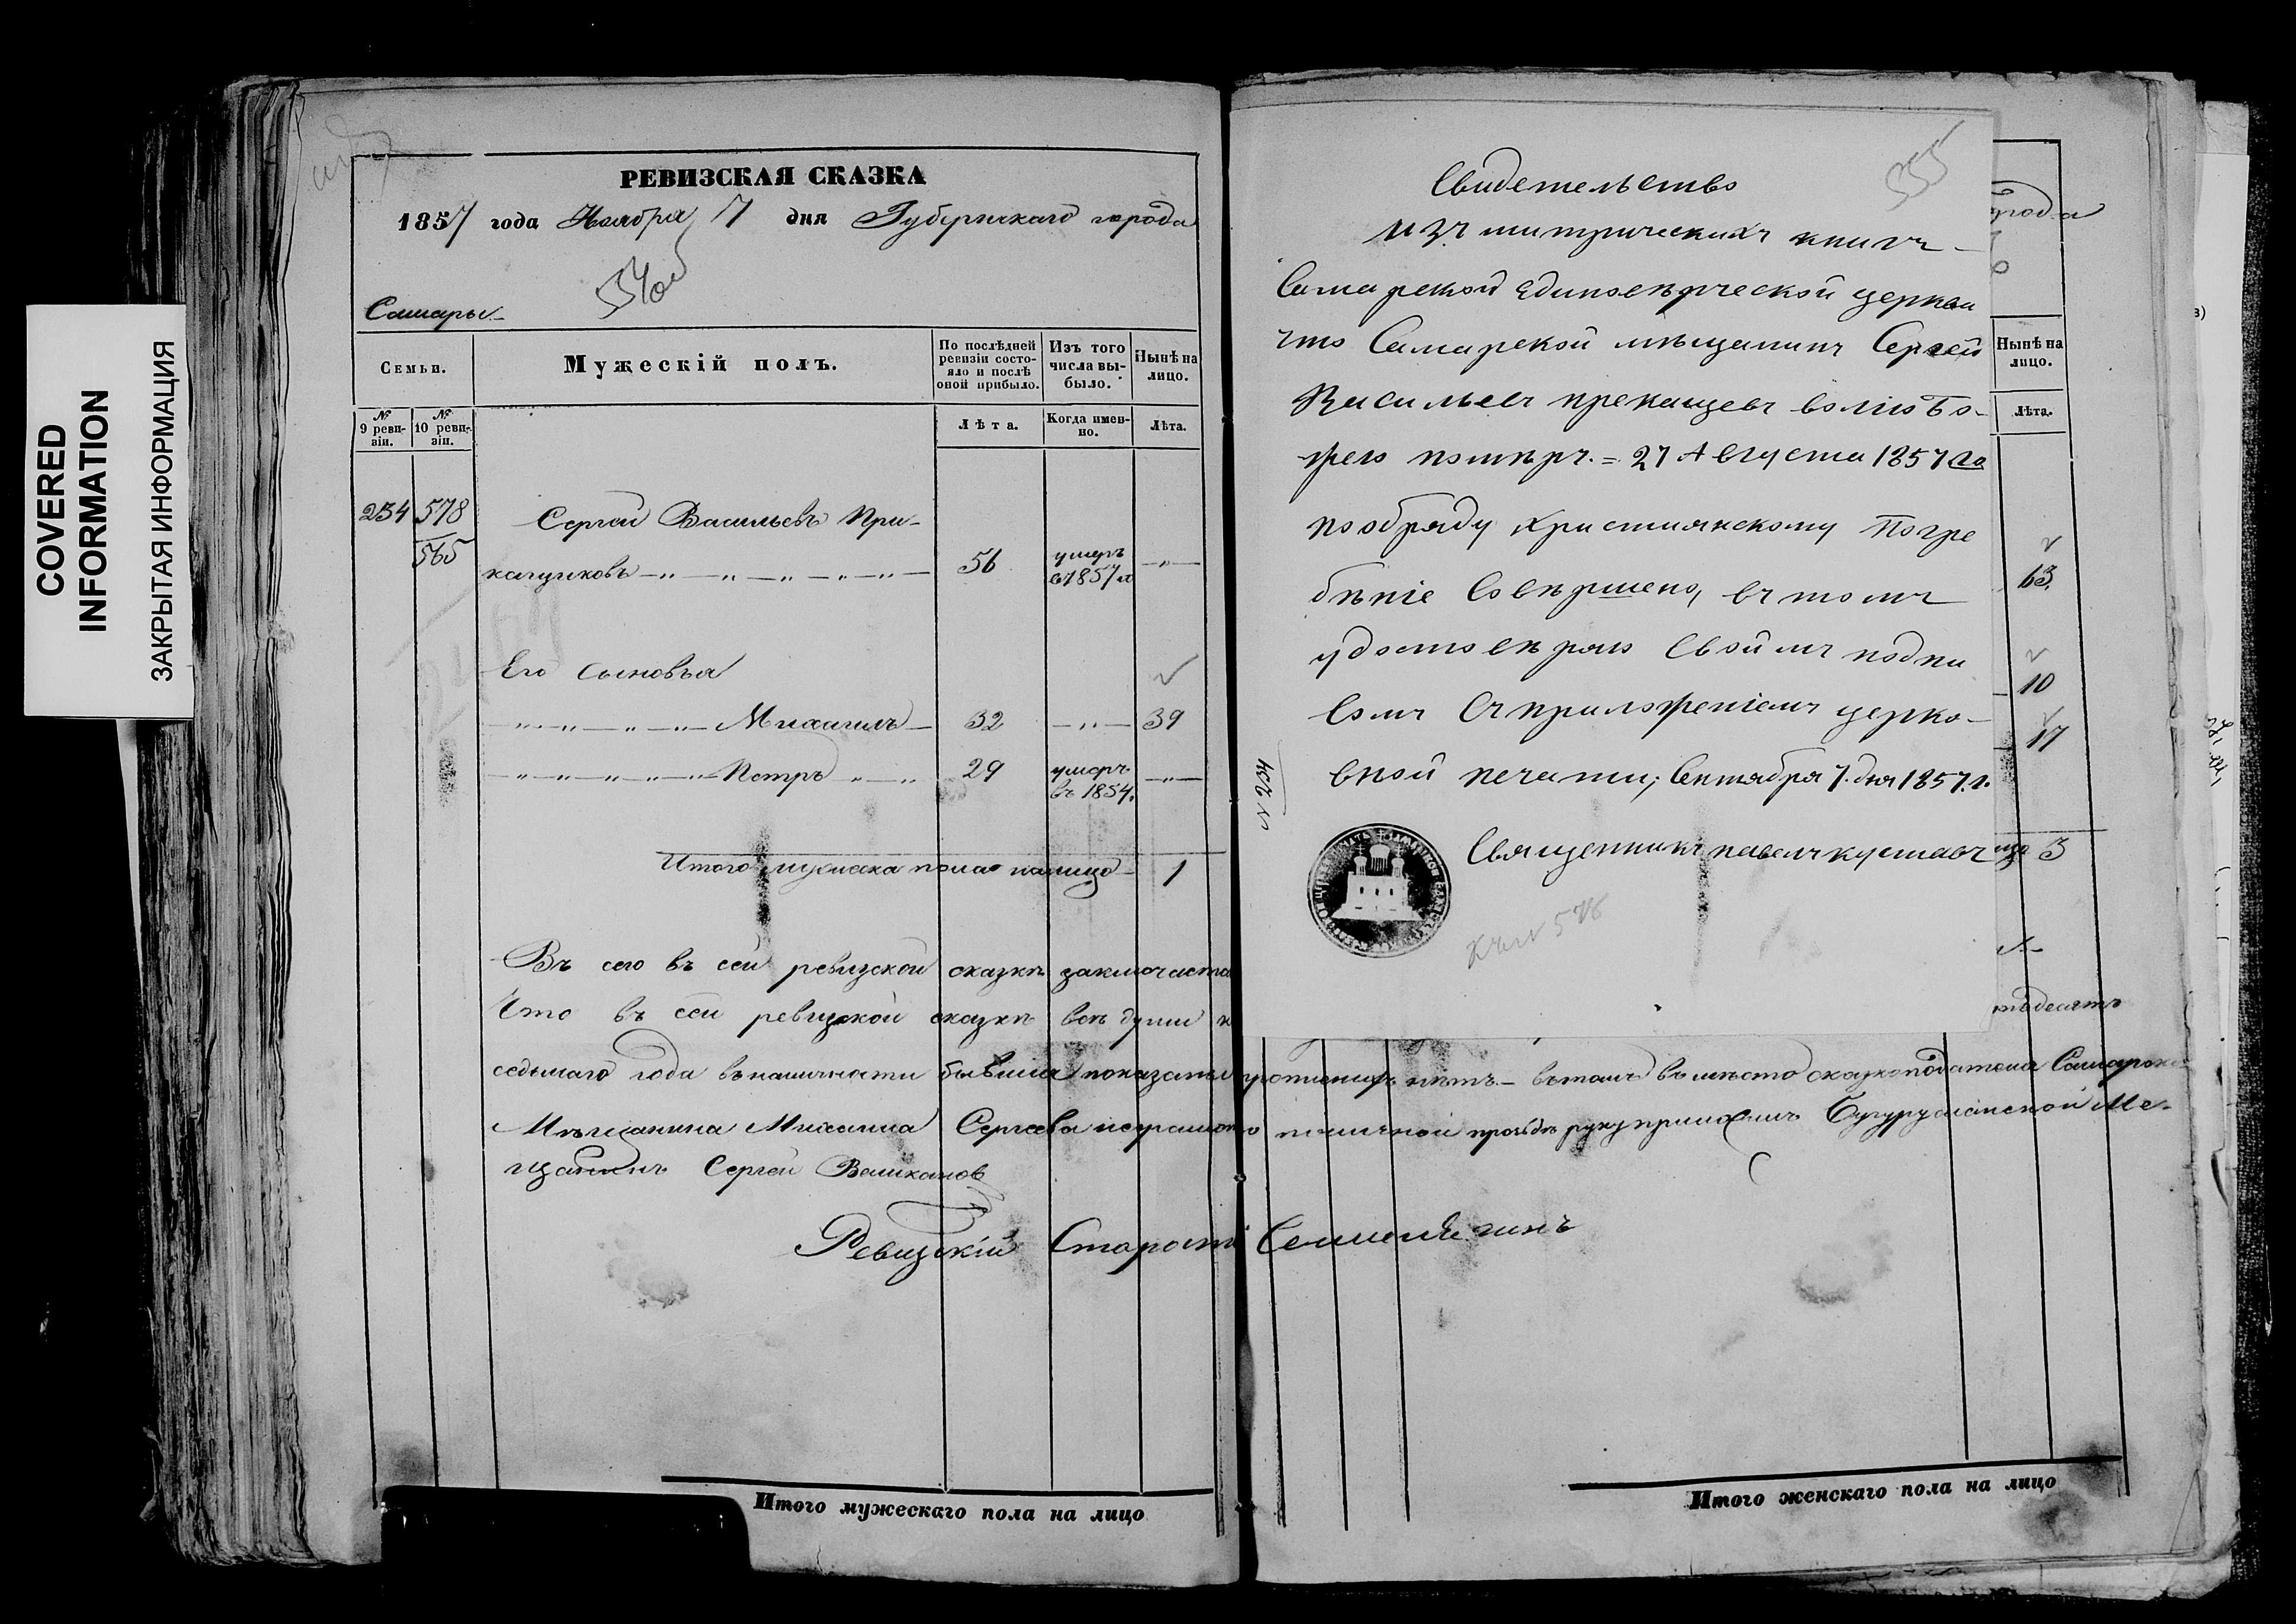 COVERED
INFORMATION
ЗАКРЫТАЯ ИНФОРМАЦИЯ
РЕВИЗСКАЯ СКАЗКА
1857 года Ноября 7 дня Губернскаго города
554об
Самары
Семьи.
Мужескій полъ.
По послѣдней ревизіи состояло и послѣ оной прибыло.
Изъ того числа выбыло.
Нынѣ на лицо.
№ 9 ревизіи.
№ 10 ревизіи.
Лѣта.
Когда именно.
Лѣта.
254 578 Сергей Васильевъ При-
565 кащиковъ 56 умеръ в 1857 г
Его сыновья
Михаилъ 32 39
Петръ 29 умеръ въ 1854.
Итого мужеска пола налицо 1
Въ сего въ сей ревизской сказке заключается
Что въ сей ревизской сказке все души
седьмаго года въ наличности бывшия показаны нетъ въ томъ въ место сказкоподателя Самарска
Мещанина Михаила Сергеева неграмотно руку приложилъ Бугурусланской Ме-
щанинъ Сергей
Ревизскій Староста
Итого мужескаго пола на лицо
555
Свидетельство
изъ митрическихъ книгъ
Самарской Единоверческой церкви
что Самарской мѣщанинъ Сергей
Васильевъ прекащевъ волию Бо-
жею помѣръ. = 27 Августа 1857 го
по обряду християнскому Погре
бѣніе совѣршено, въ томъ
удостовѣряю свойимъ подпи
сомъ съ приложеніемъ церко-
вной печати; Сентября 7. дня 1857. г.
Священникъ павелъ
№ 254
къ № 578
города
Нынѣ на лицо.
Лѣта.
63.
10
17
3
Итого женскаго пола на лицо